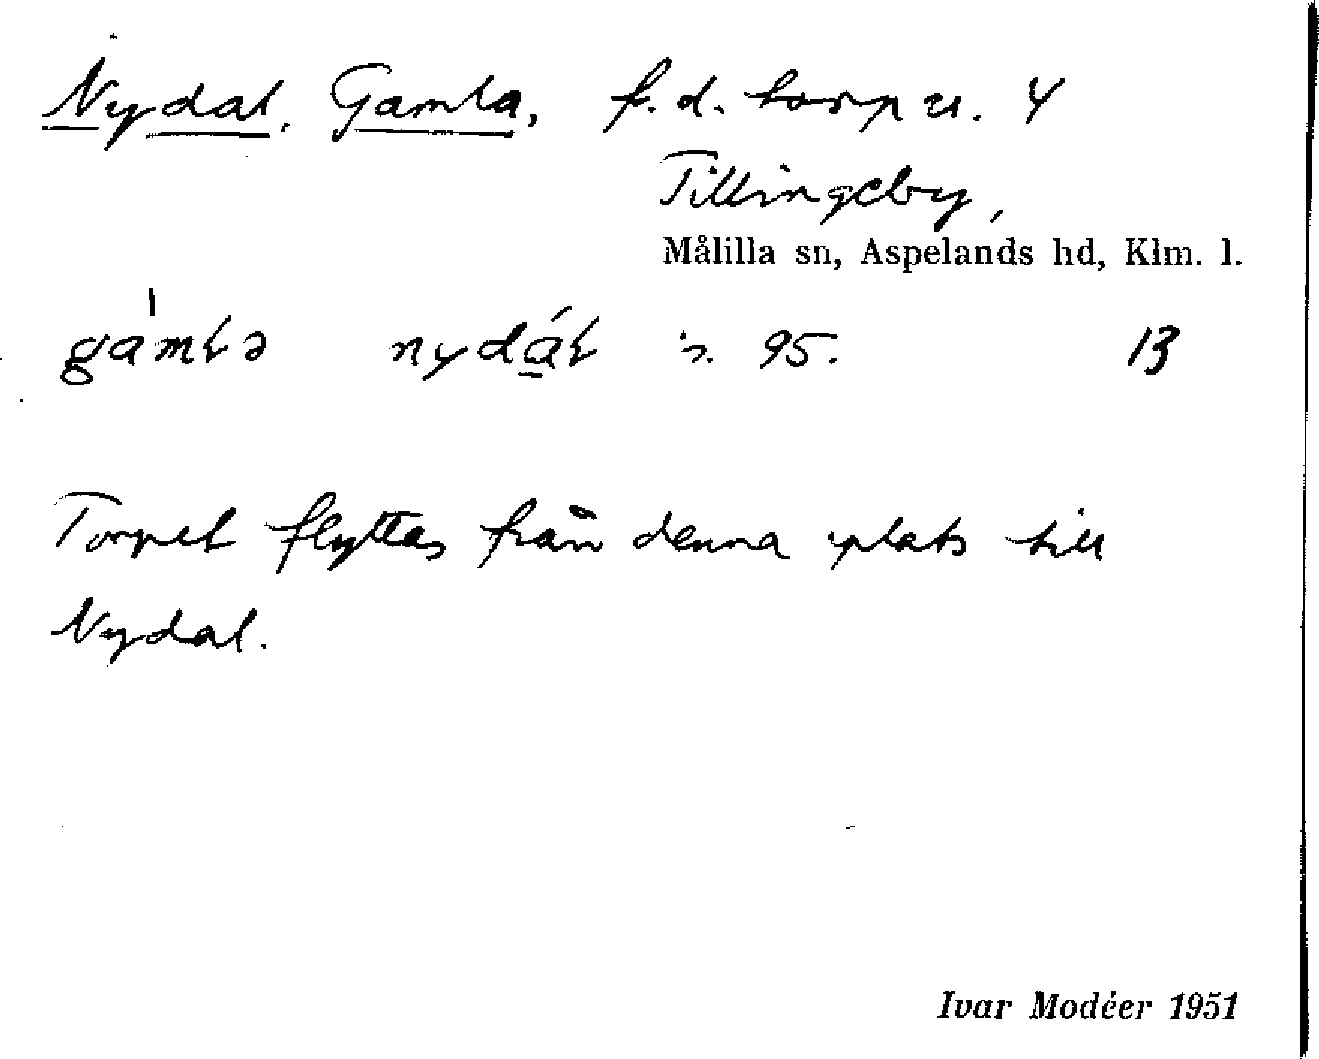 Nydal, Gamla, f.d. torp u. 4
Tillingeby,
Målilla sn, Aspelands hd, Klm. l.
gámlə nydál 95. 13
Torpet flyttas från denna plats till
Nydal.
Ivar Modéer 1951